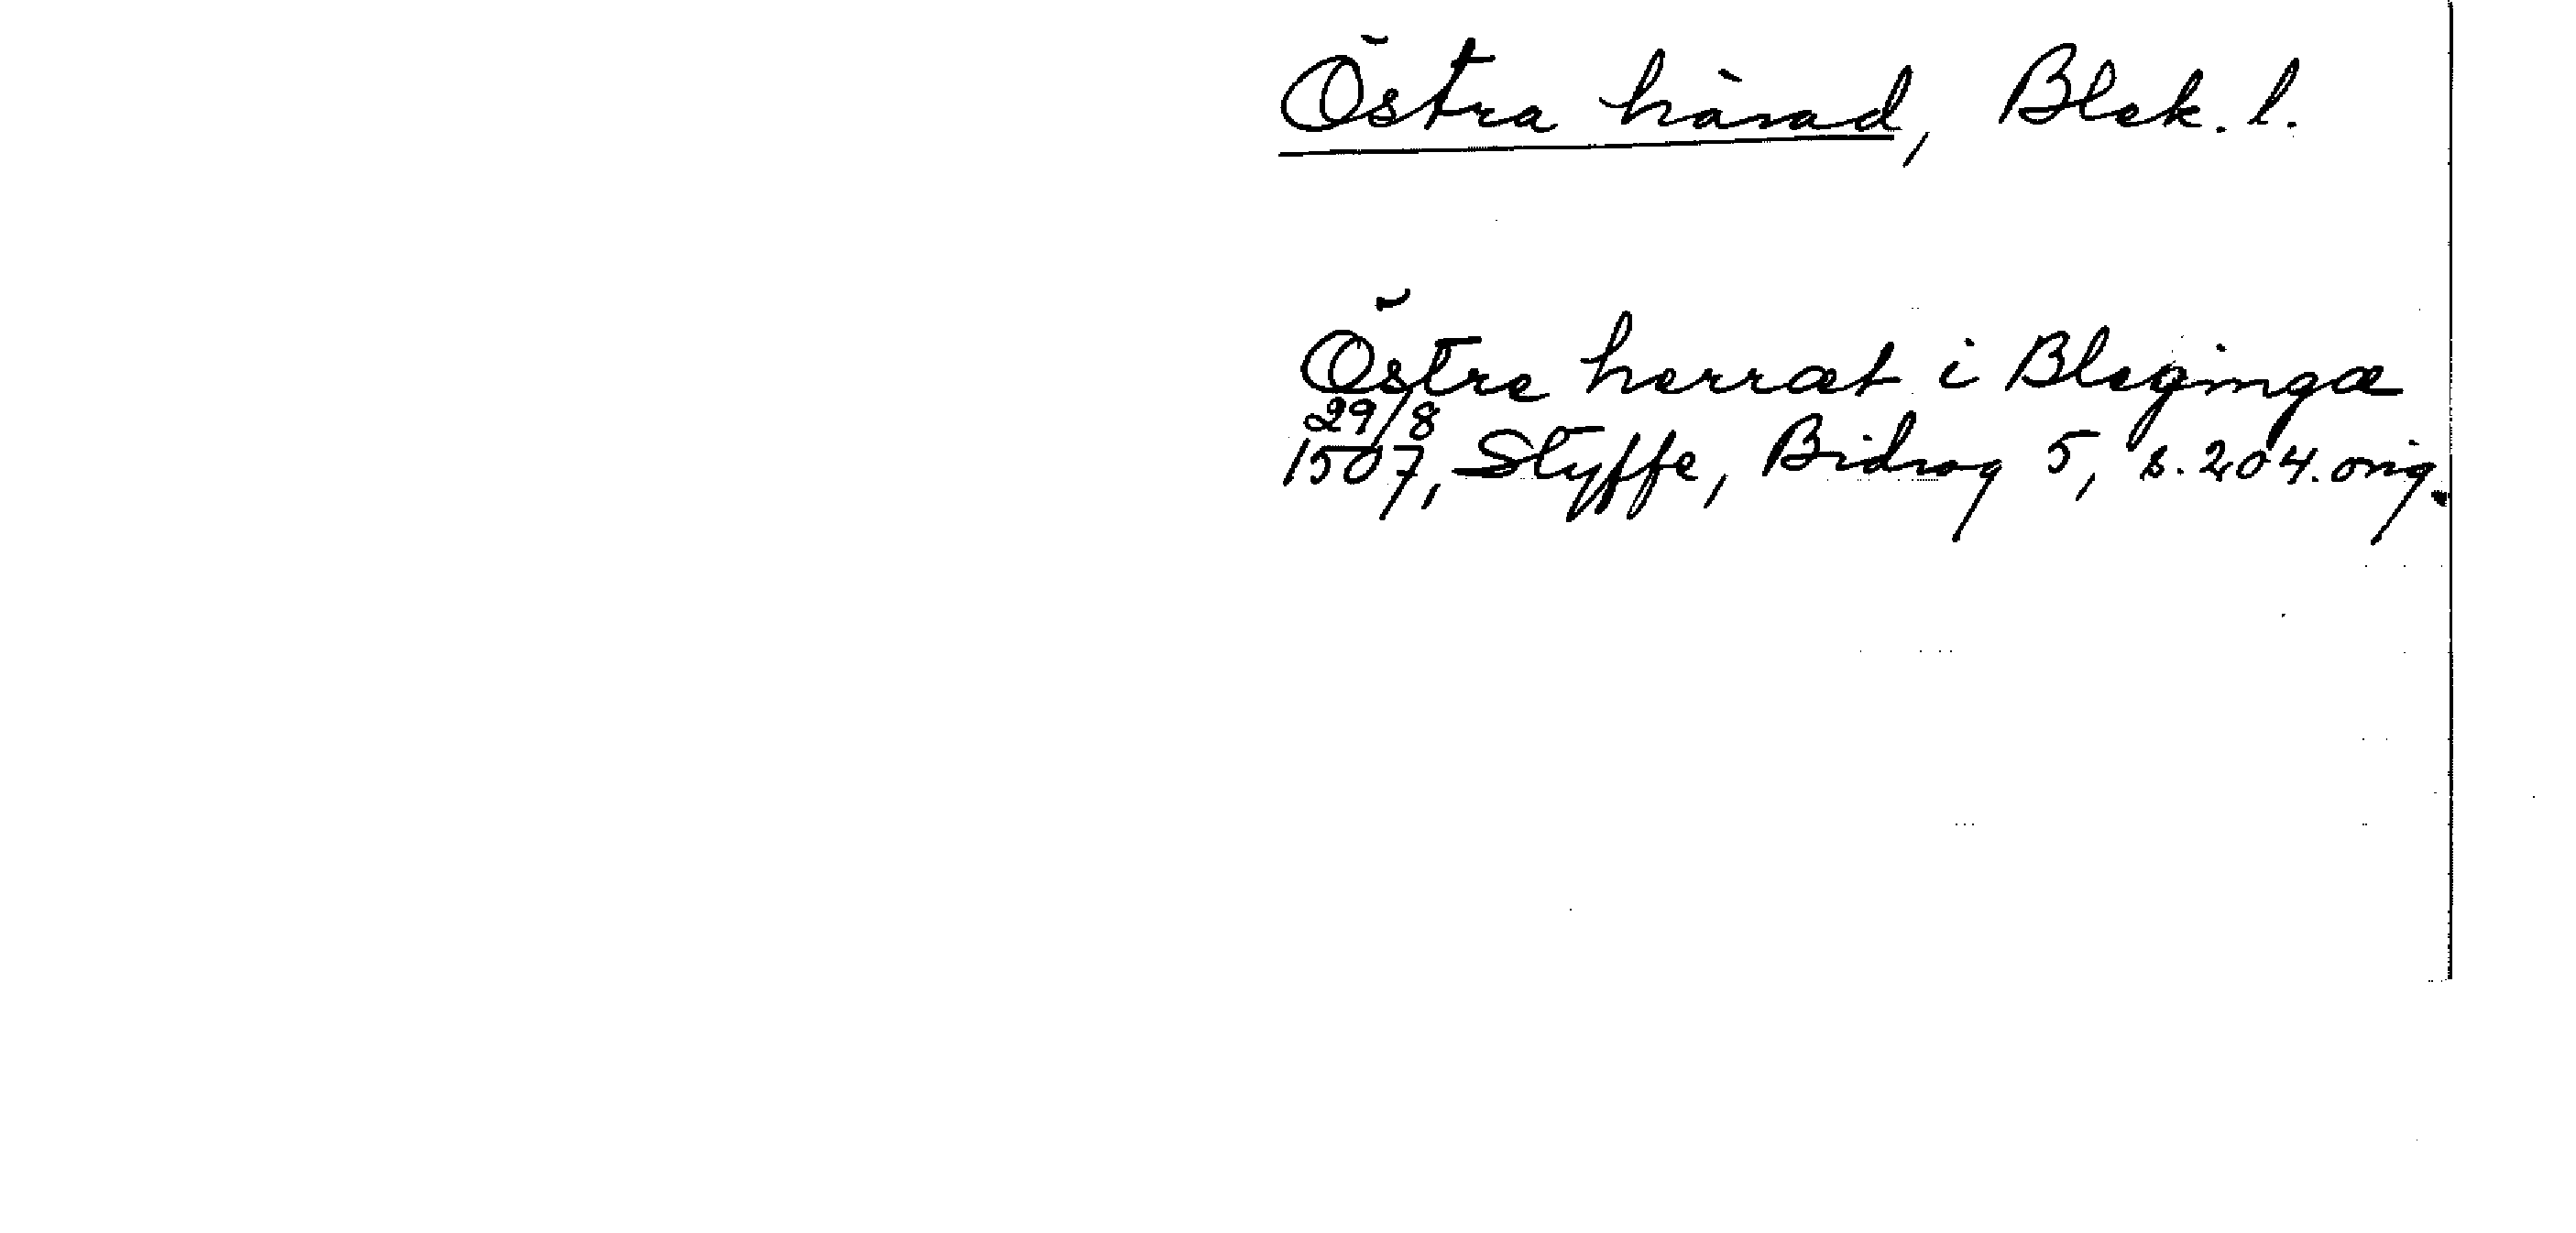 Östra härad, Blek. l.
Östre herræt i Blegingæ
29/8
1507, Styffe, Bidrag 5, s. 204. orig.